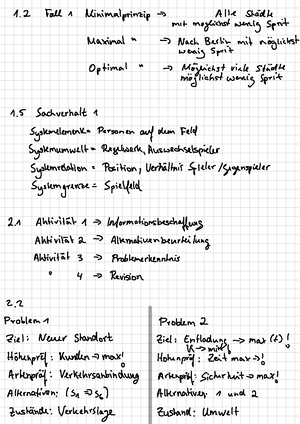 1.2 Fall 1 Minimalprinzip → Alle Städte
mit möglichst wenig Sprit
Maximal " → Nach Berlin mit möglichst
wenig Sprit
Optimal " → Möglichst viele Städte
möglichst wenig Sprit
1.5 Sachverhalt 1
Systemelemente = Personen auf dem Feld
Systemumwelt = Regelwerk, Auswechselspieler
Systemrelation = Position, Verhältnis Spieler/Gegenspieler
Systemgrenze = Spielfeld
2.1 Aktivität 1 → Informationsbeschaffung
Aktivität 2 → Alternativenbeurteilung
Aktivität 3 → Problemerkenntnis
" 4 → Revision
2.2
Problem 1
Ziel: Neuer Standort
Höhenpräf: Kunden → max!
Artenpräf: Verkehrsanbindung
Alternativen: (S1 → S6)
Zustände: Verkehrslage
Problem 2
Ziel: Entladung → max (t)!
K → min!
Höhenpräf: Zeit max → !
Artenpräf: Sicherheit → max!
Alternativen 1 und 2
Zustand: Umwelt